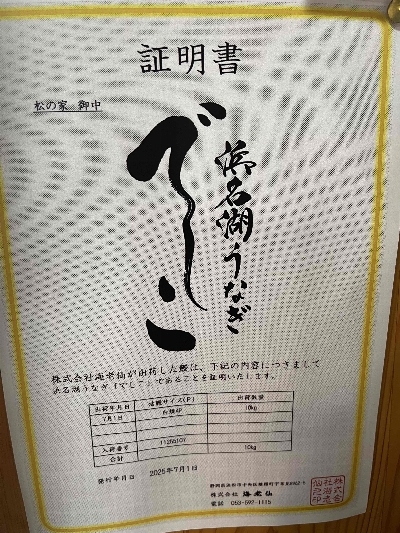 証明書
松の家 御中
浜名湖うなぎ
でしこ
株式会社海老仙が出荷した鰻は、下記の内容につきまして
浜名湖うなぎ「でしこ」であることを証明いたします。
出荷年月日 活鰻サイズ(P) 出荷数量
7月1日 10kg
入荷番号
合計 10kg
発行年月日 2025年7月1日
株式会社 海老仙
電話 053-592-1115